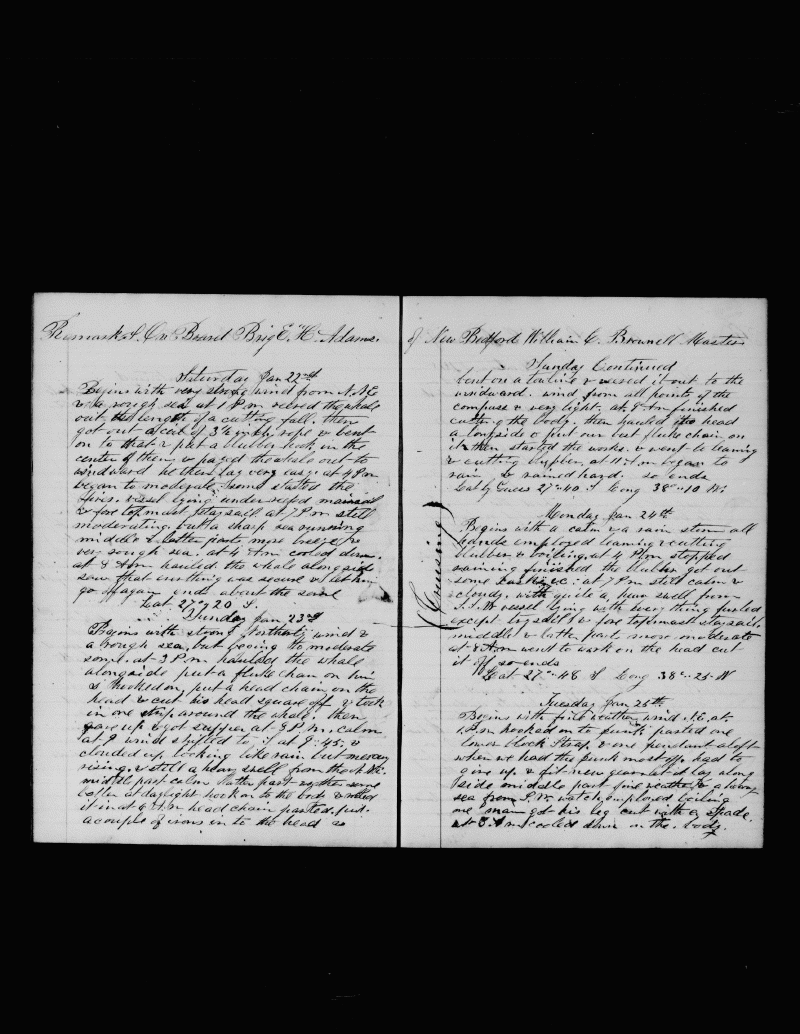 Remarks On Board Brig E. H. Adams.
Saturday Jan 22nd
Begins with very strong wind from N.N.E
& a rough sea at 1 P.m veered the whale
out the length of a cutting fall. then
got out a coil of 3½ inch rope & bent
on to that & put a blubber hook in the
center of them & payed the whale out to
windward he then lay very easy at 4 P.m
began to moderate some started the
fires. vessel lying under reefed mainsail
& fore topmast staysail at 7 P.m still
moderating, but a sharp sea running
middle & latter parts more breeze &
very rough sea. at 4 A.m cooled down.
at 8 A.m hauled the whale alongside
saw that everything was secure & let him
go off again ends about the same
Lat 27" 20 S.
Sunday Jan 23rd
Begins with strong Northerly wind &
a rough sea, but begins to moderate
some. at 3 P.m hauled the whale
alongside put a fluke chain on him
& hooked on, put a head chain on the
head & cut his head square off & took
in one strip around the whale. then
gave up & got supper at 8 P.m. calm
at 9 wind shifted to S at 9:45. &
clouded up looking like rain but mercury
rising. & still a heavy swell from the
middle part calm latter part the same
at daylight hook on to the body & rolled
it in at 6 A.m head chain parted. put
a couple of irons in to the head &
of New Bedford William C. Brownell Master
Sunday Continued
bent on a towline & veered it out to the
windward. wind from all points of the
compass & very light. at 8 A.m finished
cutting the body. then hauled the head
alongside & put our best fluke chain on
it then started the works. & went to leaning
& cutting blubber, at 11 A.m began to
rain & rained hard. so ends
Lat by Guess 27"40 S Long 38"10 W.
(Cruising)
Monday Jan 24th
Begins with a calm & a rain storm all
hands employed leaning & cutting
blubber & boiling. at 4 P.m stopped
raining finished the blubber got out
some casks &c. at 7 P.m still calm &
cloudy. with quite a heavy swell from
S.S.W vessel lying with everything furled
except trysail & fore topmast staysail.
middle & latter part more moderate
at 8 A.m went to work on the head cut
it off so ends
Lat 27"-48 S Long 38"-25 W
Tuesday Jan 25th
Begins with fine weather wind S.E. at
1 P.m hooked on to junk parted one
lower block strap & one pendant aloft
when we had the junk most up. had to
give up & fit new gear let it lay along
side middle part fine weather & a heavy
sea from S.W. watch employed boiling
one man got his leg cut with a spade.
at 5 A.m cooled down on the body.